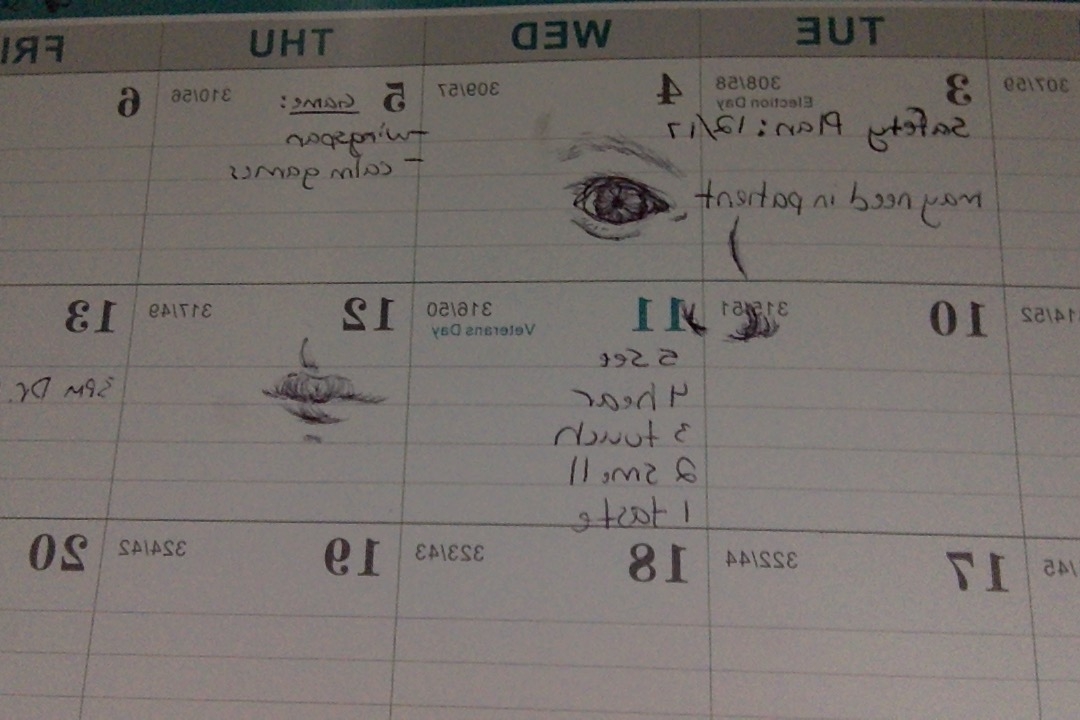 TUE WED THU FRI
307/59
3 308/58
Election Day
Safety Plan: 12/17
may need in patient
4 309/57
5 310/56
Game:
- wingspan
- calm games
6
14/52
10 315/51
11 316/50
Veterans Day
5 see
4 hear
3 touch
2 smell
1 taste
12 317/49
13
Dr.
/45
17 322/44
18 323/43
19 324/42
20